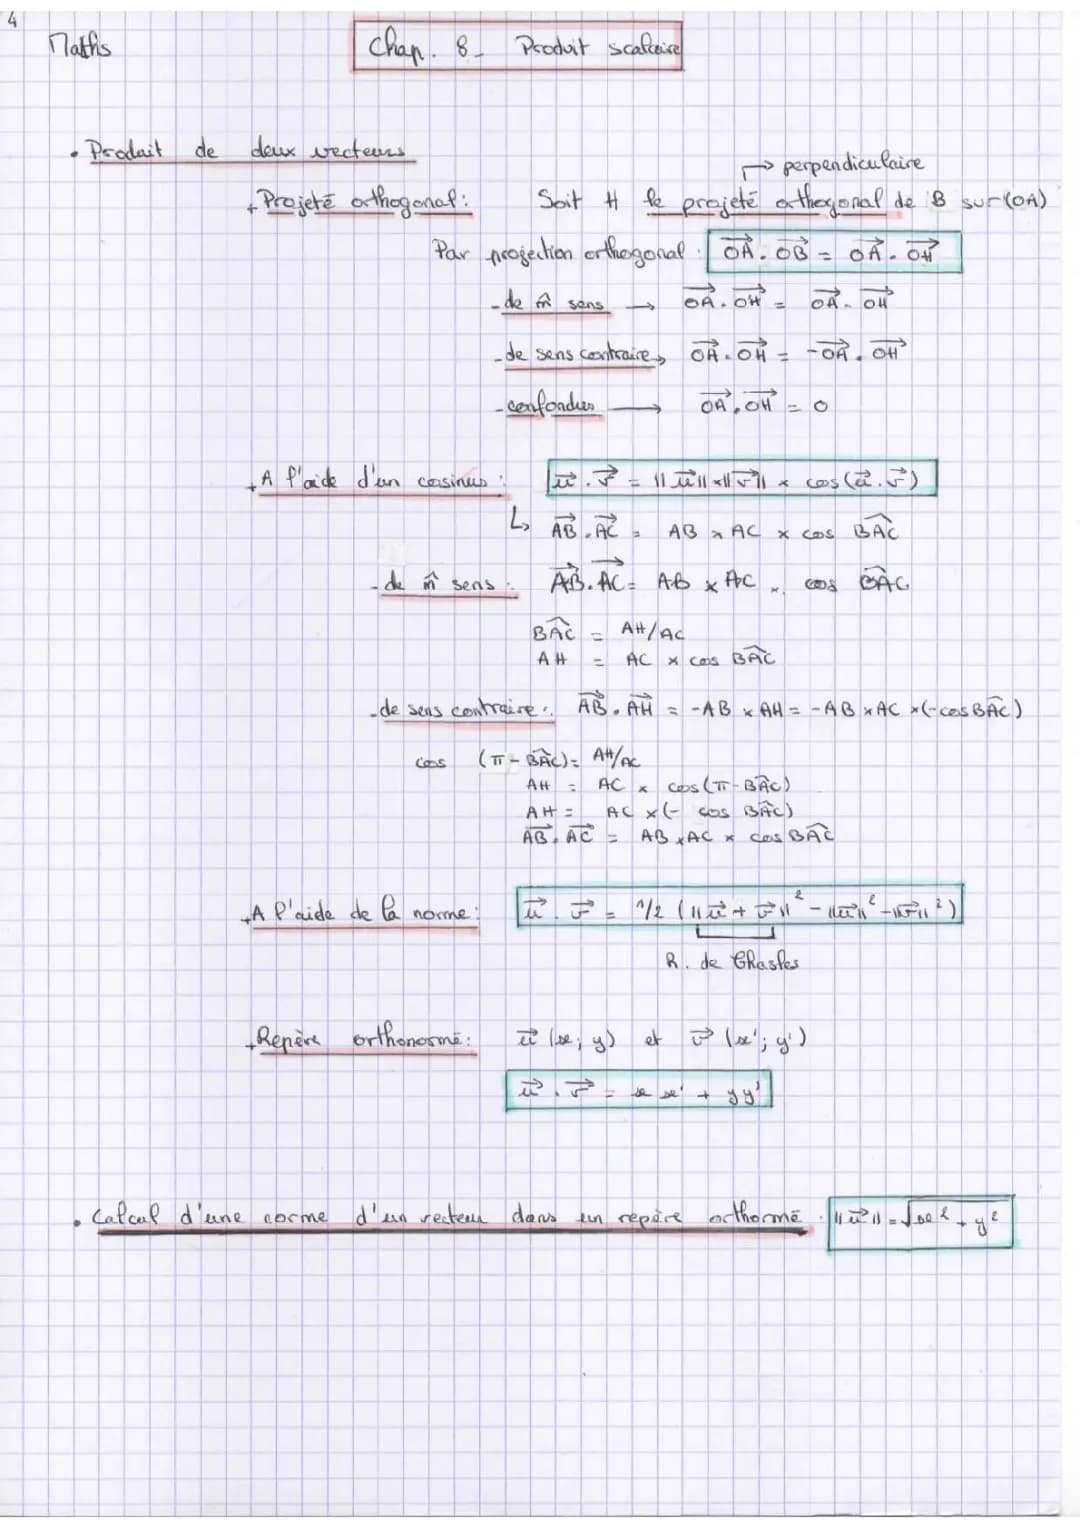 4
Maths
Chap. 8_ Produit scalaire
• Produit de deux vecteurs
→ perpendiculaire
+ Projeté orthogonal : Soit H le projeté orthogonal de B sur (OA)
Par projection orthogonal : $\overrightarrow{OA} . \overrightarrow{OB} = \overrightarrow{OA} . \overrightarrow{OH}$
- de m̂ sens → $\overrightarrow{OA} . \overrightarrow{OH} = \overrightarrow{OA} . \overrightarrow{OH}$
- de sens contraire → $\overrightarrow{OA} . \overrightarrow{OH} = -\overrightarrow{OA} . \overrightarrow{OH}$
- confondus → $\overrightarrow{OA} . \overrightarrow{OH} = 0$
+ A l'aide d'un cosinus : $\vec{u} . \vec{v} = ||\vec{u}|| \times ||\vec{v}|| \times \cos(\vec{u} . \vec{v})$
↳ $\overrightarrow{AB} . \overrightarrow{AC} = AB \times AC \times \cos \widehat{BAC}$
- de m̂ sens : $\overrightarrow{AB} . \overrightarrow{AC} = AB \times AC \times \cos \widehat{BAC}$
$\widehat{BAC} = AH/AC$
$AH = AC \times \cos \widehat{BAC}$
- de sens contraire : $\overrightarrow{AB} . \overrightarrow{AH} = -AB \times AH = -AB \times AC \times (-\cos \widehat{BAC})$
$\cos (\pi - \widehat{BAC}) = AH/AC$
$AH = AC \times \cos(\pi - \widehat{BAC})$
$AH = AC \times (- \cos \widehat{BAC})$
$\overrightarrow{AB} . \overrightarrow{AC} = AB \times AC \times \cos \widehat{BAC}$
+ A l'aide de la norme : $\vec{u} . \vec{v} = 1/2 (||\vec{u} + \vec{v}||^2 - ||\vec{u}||^2 - ||\vec{v}||^2)$
R. de Chasles
+ Repère orthonormé : $\vec{u} (x; y)$ et $\vec{v} (x'; y')$
$\vec{u} . \vec{v} = x x' + y y'$
• Calcul d'une norme d'un vecteur dans un repère orthormé : $||\vec{u}|| = \sqrt{x^2 + y^2}$